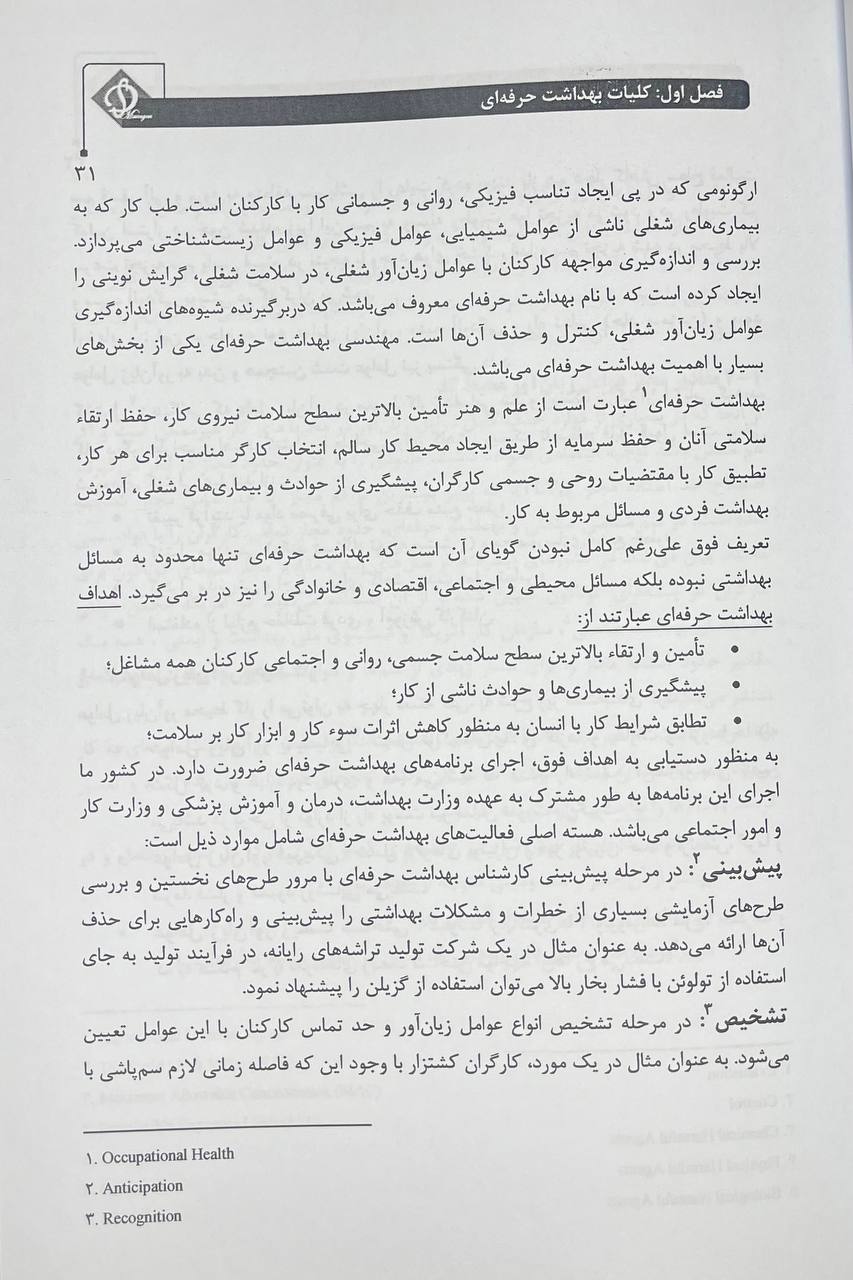 فصل اول: کلیات بهداشت حرفه‌ای
۳۱
ارگونومی که در پی ایجاد تناسب فیزیکی، روانی و جسمانی کار با کارکنان است. طب کار که به
بیماری‌های شغلی ناشی از عوامل شیمیایی، عوامل فیزیکی و عوامل زیست‌شناختی می‌پردازد.
بررسی و اندازه‌گیری مواجهه کارکنان با عوامل زیان‌آور شغلی، در سلامت شغلی، گرایش نوینی را
ایجاد کرده است که با نام بهداشت حرفه‌ای معروف می‌باشد. که دربرگیرنده شیوه‌های اندازه‌گیری
عوامل زیان‌آور شغلی، کنترل و حذف آن‌ها است. مهندسی بهداشت حرفه‌ای یکی از بخش‌های
بسیار با اهمیت بهداشت حرفه‌ای می‌باشد.
بهداشت حرفه‌ای۱ عبارت است از علم و هنر تأمین بالاترین سطح سلامت نیروی کار، حفظ ارتقاء
سلامتی آنان و حفظ سرمایه از طریق ایجاد محیط کار سالم، انتخاب کارگر مناسب برای هر کار،
تطبیق کار با مقتضیات روحی و جسمی کارگران، پیشگیری از حوادث و بیماری‌های شغلی، آموزش
بهداشت فردی و مسائل مربوط به کار.
تعریف فوق علی‌رغم کامل نبودن گویای آن است که بهداشت حرفه‌ای تنها محدود به مسائل
بهداشتی نبوده بلکه مسائل محیطی و اجتماعی، اقتصادی و خانوادگی را نیز در بر می‌گیرد. اهداف
بهداشت حرفه‌ای عبارتند از:
• تأمین و ارتقاء بالاترین سطح سلامت جسمی، روانی و اجتماعی کارکنان همه مشاغل؛
• پیشگیری از بیماری‌ها و حوادث ناشی از کار؛
• تطابق شرایط کار با انسان به منظور کاهش اثرات سوء کار و ابزار کار بر سلامت؛
به منظور دستیابی به اهداف فوق، اجرای برنامه‌های بهداشت حرفه‌ای ضرورت دارد. در کشور ما
اجرای این برنامه‌ها به طور مشترک به عهده وزارت بهداشت، درمان و آموزش پزشکی و وزارت کار
و امور اجتماعی می‌باشد. هسته اصلی فعالیت‌های بهداشت حرفه‌ای شامل موارد ذیل است:
پیش‌بینی۲: در مرحله پیش‌بینی کارشناس بهداشت حرفه‌ای با مرور طرح‌های نخستین و بررسی
طرح‌های آزمایشی بسیاری از خطرات و مشکلات بهداشتی را پیش‌بینی و راه‌کارهایی برای حذف
آن‌ها ارائه می‌دهد. به عنوان مثال در یک شرکت تولید تراشه‌های رایانه، در فرآیند تولید به جای
استفاده از تولوئن با فشار بخار بالا می‌توان استفاده از گزیلن را پیشنهاد نمود.
تشخیص۳: در مرحله تشخیص انواع عوامل زیان‌آور و حد تماس کارکنان با این عوامل تعیین
می‌شود. به عنوان مثال در یک مورد، کارگران کشتزار با وجود این که فاصله زمانی لازم سم‌پاشی با
۱. Occupational Health
۲. Anticipation
۳. Recognition